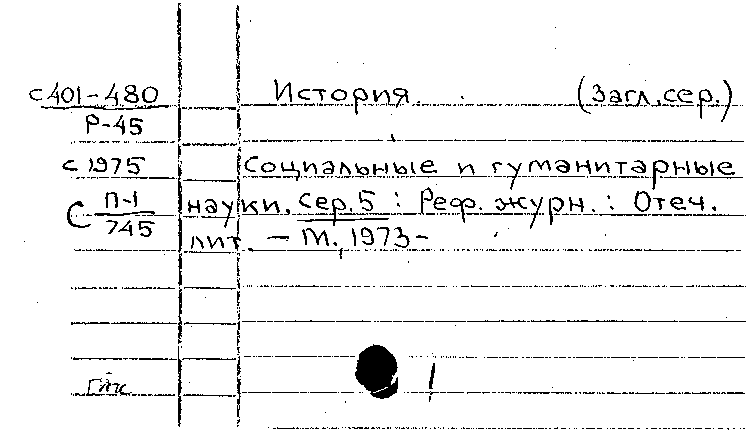 с401-480 История (Загл. сер.)
Р-45
с 1975 Социальные и гуманитарные
С П-1/745 науки. Сер. 5 : Реф. журн. : Отеч.
лит. — М., 1973-